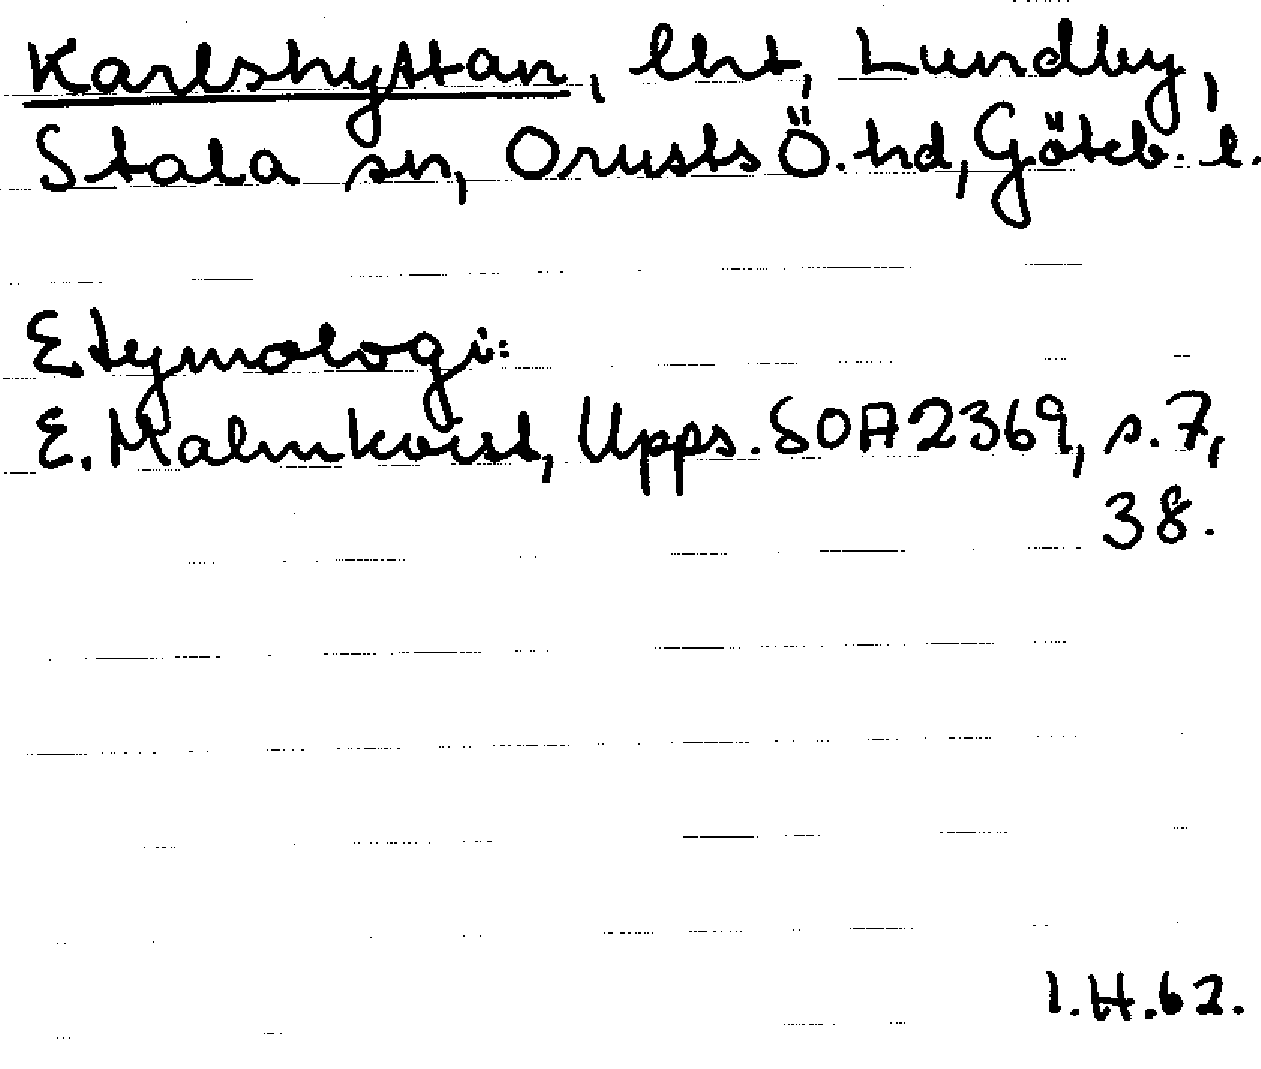 Karlshyttan, lht, Lundby,
Stala sn, Orusts Ö. hd, Göteb. l.
Etymologi:
E. Malmkvist, Upps. SOA 2369, s. 7,
38.
I.H.62.